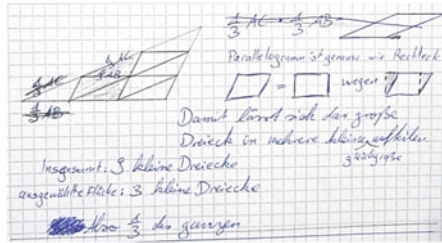 1/3 AC · 1/3 AB
1/3 AC
1/3 AB
1/3 AC
1/3 AB
Parallelogramm ist genauso wie Rechteck
= wegen
Damit lässt sich das große
Dreieck in mehrere kleine aufteilen
gleichgroße
Insgesamt: 9 kleine Dreiecke
ausgewählte Fläche: 3 kleine Dreiecke
Also 1/3 des ganzen